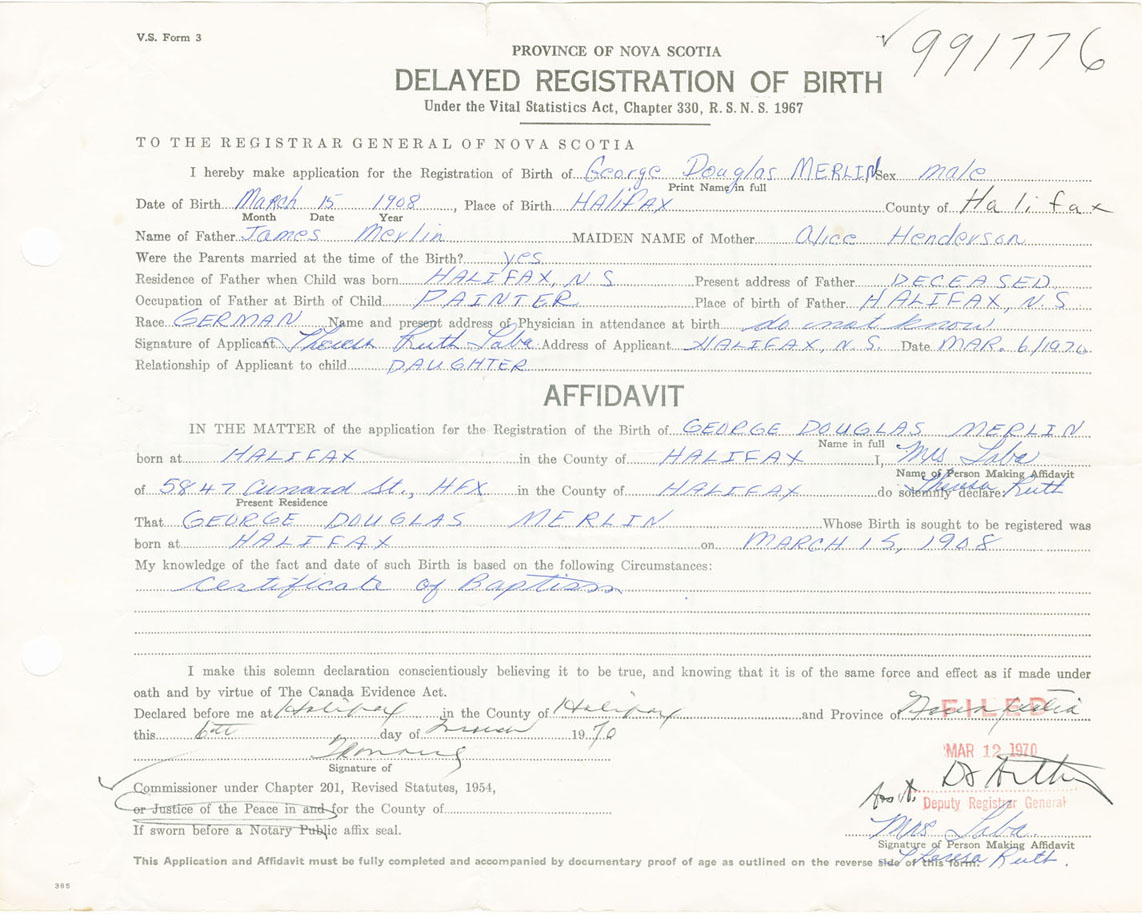 V.S. Form 3
991776
PROVINCE OF NOVA SCOTIA
DELAYED REGISTRATION OF BIRTH
Under the Vital Statistics Act, Chapter 330, R. S. N. S. 1967
TO THE REGISTRAR GENERAL OF NOVA SCOTIA
I hereby make application for the Registration of Birth of George Douglas MERLIN Sex male
Print Name in full
Date of Birth March 15 1908, Place of Birth HALIFAX County of Halifax
Month Date Year
Name of Father James Merlin MAIDEN NAME of Mother Alice Henderson
Were the Parents married at the time of the Birth? yes
Residence of Father when Child was born HALIFAX, N S Present address of Father DECEASED
Occupation of Father at Birth of Child PAINTER Place of birth of Father HALIFAX, N.S.
Race GERMAN Name and present address of Physician in attendance at birth do not know
Signature of Applicant Theresa Ruth Laba Address of Applicant HALIFAX, N.S. Date MAR. 6/1970
Relationship of Applicant to child DAUGHTER
AFFIDAVIT
IN THE MATTER of the application for the Registration of the Birth of GEORGE DOUGLAS MERLIN
Name in full
born at HALIFAX in the County of HALIFAX I, Mrs Laba
Name of Person Making Affidavit
of 5847 Cunard St., HFX in the County of HALIFAX do solemnly declare: Theresa Ruth
Present Residence
That GEORGE DOUGLAS MERLIN Whose Birth is sought to be registered was
born at HALIFAX on MARCH 15, 1908
My knowledge of the fact and date of such Birth is based on the following Circumstances:
Certificate of Baptism
I make this solemn declaration conscientiously believing it to be true, and knowing that it is of the same force and effect as if made under
oath and by virtue of The Canada Evidence Act.
Declared before me at Halifax in the County of Halifax and Province of Nova Scotia
FILED
this 6th day of March 1970
MAR 12 1970
Signature of
Commissioner under Chapter 201, Revised Statutes, 1954,
Deputy Registrar General
or Justice of the Peace in and for the County of
Mrs Laba
If sworn before a Notary Public affix seal.
Signature of Person Making Affidavit
Theresa Ruth.
This Application and Affidavit must be fully completed and accompanied by documentary proof of age as outlined on the reverse side of this form.
365